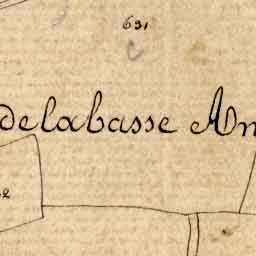 691
C
delabasse An